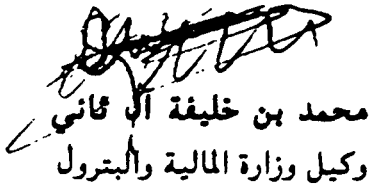 محمد بن خليفة آل ثاني
وكيل وزارة المالية والبترول